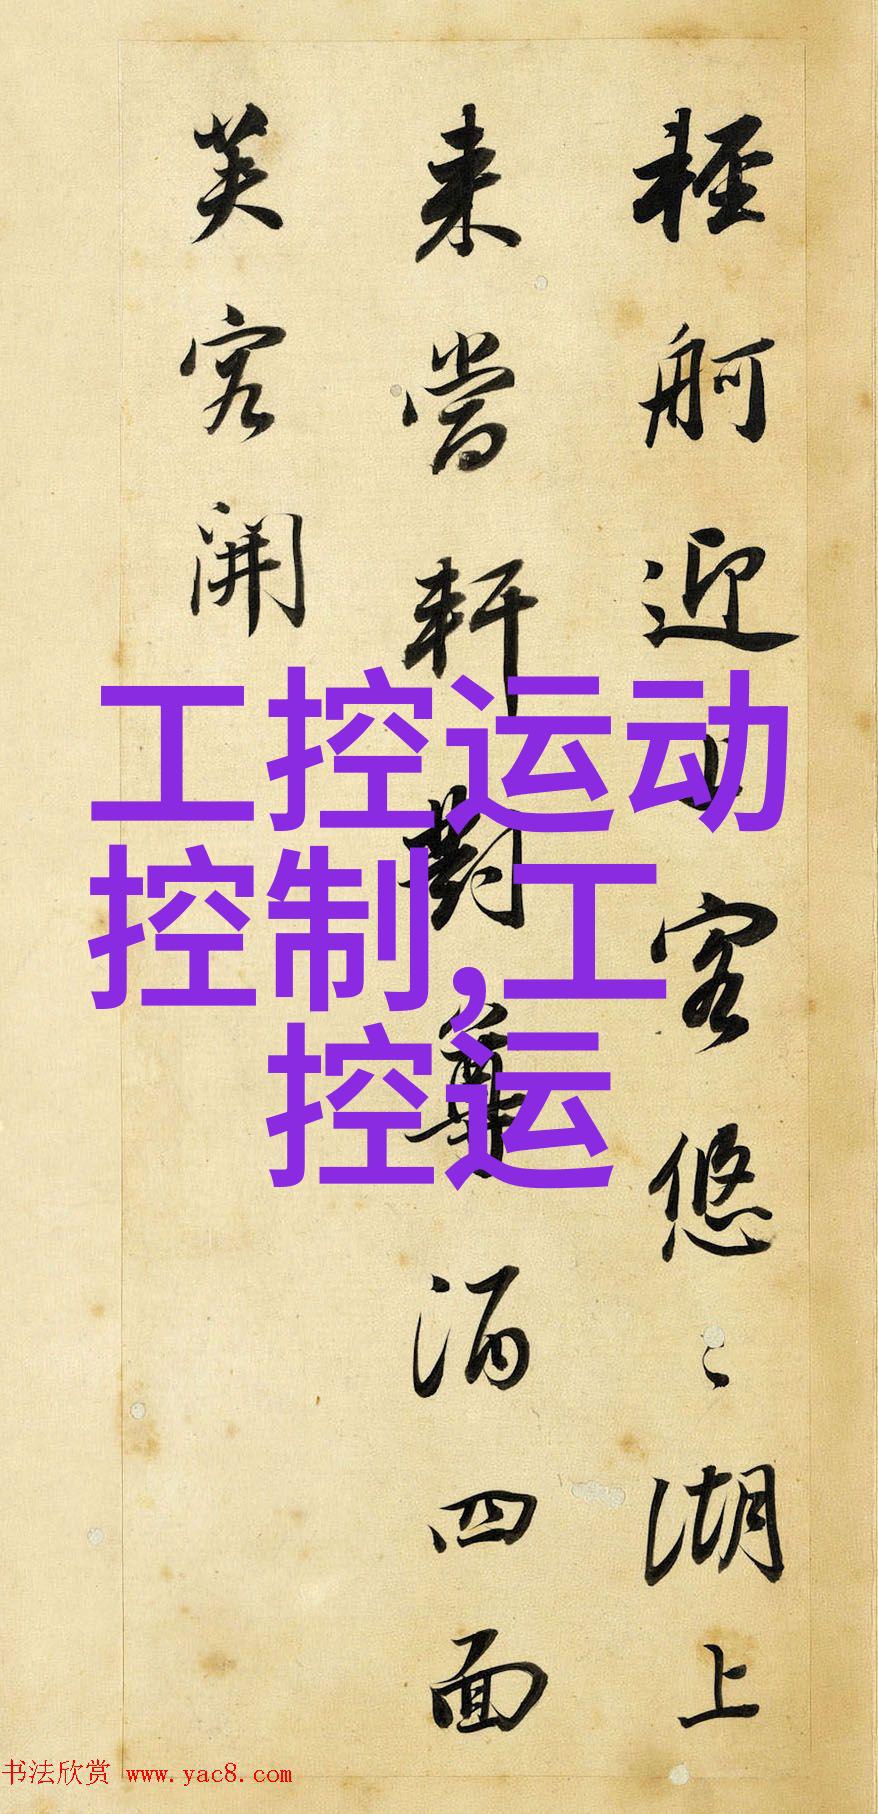 輕舸迎上客悠〻湖上
来當軒對尊酒四面
芙容開
工控运动
控制,工
控运
书法欣赏 www.yac8.com